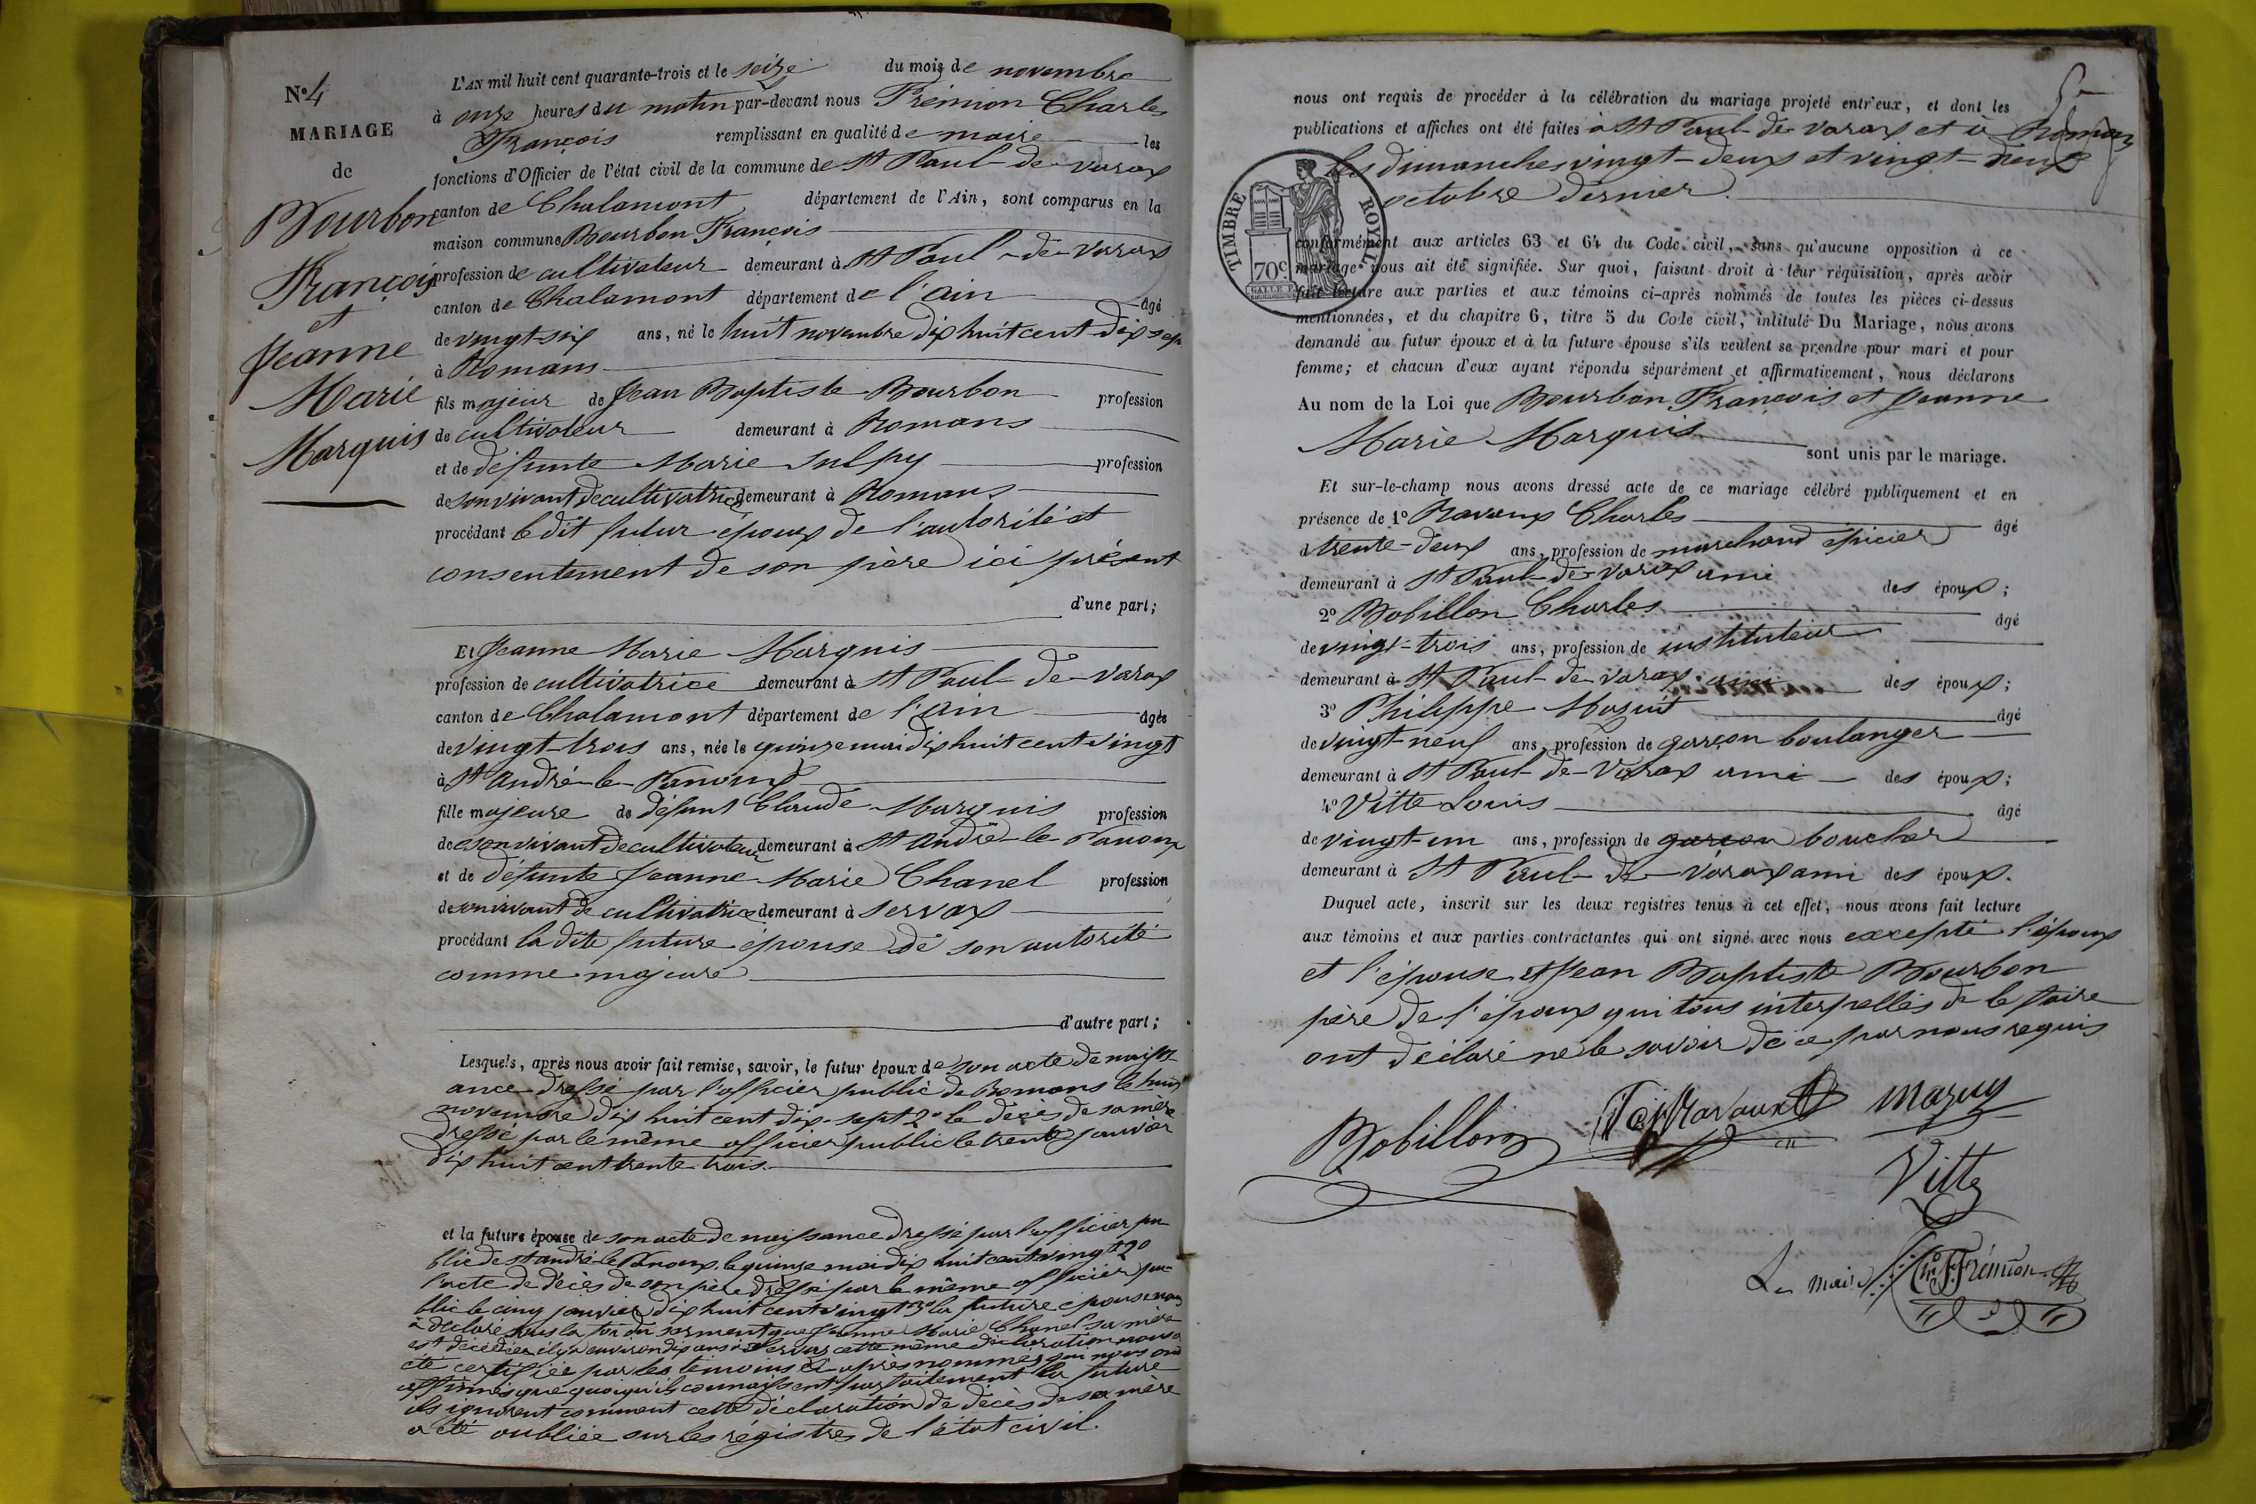 N° 4
MARIAGE
de
Bourbon
François
et
Jeanne
Marie
Marquis
L'AN mil huit cent quarante-trois et le seize du mois de novembre
à onze heures du matin par-devant nous Frémion Charles
François remplissant en qualité de maire les
fonctions d'Officier de l'état civil de la commune de St Paul-de-varax
canton de Chalamont département de l'Ain, sont comparus en la
maison commune Bourbon François
profession de cultivateur demeurant à St Paul-de-Varax
canton de Chalamont département de l'ain âgé
de vingt-six ans, né le huit novembre dix huit cent dix sept
à Romans
fils majeur de Jean Baptiste Bourbon profession
de cultivateur demeurant à Romans
et de défunte Marie Sulpy profession
de son vivant de cultivatrice demeurant à Romans
procédant le dit futur époux de l'autorité et
consentement de son père ici présent
d'une part;
Et Jeanne Marie Marquis
profession de cultivatrice demeurant à St Paul-de-Varax
canton de Chalamont département de l'ain âgée
de vingt-trois ans, née le quinze mai dix huit cent vingt
à St André-le-Panoux
fille majeure de défunt Claude Marquis profession
de son vivant de cultivateur demeurant à St André-le-Panoux
et de défunte Jeanne Marie Chanel profession
de son vivant de cultivatrice demeurant à Servax
procédant la dite future épouse de son autorité
comme majeure
d'autre part;
Lesquels, après nous avoir fait remise, savoir, le futur époux de son acte de naiss-
ance dressé par l'officier public de Romans le huit
novembre dix huit cent dix-sept 2° le décès de sa mère
dressé par le même officier public le trente janvier
dix huit cent trente trois.
et la future épouse de son acte de naissance dressé par l'officier pu-
blic de st andré-le Panoux le quinze mai dix huit cent vingt 2°
l'acte de décès de son père dressé par le même officier pu-
blic le cinq janvier dix huit cent vingt 3° la future épouse nous
a déclaré sous la foi du serment que Jeanne Marie Chanel sa mère
est décédée il y a environ dix ans à Servas cette même déclaration nous a
été certifiée par les témoins ci après nommés qui nous ont
affirmés que quoiqu'ils connaissent parfaitement la future
ils ignorent comment cette déclaration de décès de sa mère
a été oubliée sur les régistres de l'état civil.
nous ont requis de procéder à la célébration du mariage projeté entr'eux, et dont les
publications et affiches ont été faites à St Paul-de-varax et à Romans
les dimanches vingt-deux et vingt-neuf
octobre dernier.
TIMBRE ROYAL
70 c.
conformément aux articles 63 et 64 du Code civil, sans qu'aucune opposition à ce
mariage nous ait été signifiée. Sur quoi, faisant droit à leur réquisition, après avoir
fait lecture aux parties et aux témoins ci-après nommés de toutes les pièces ci-dessus
mentionnées, et du chapitre 6, titre 5 du Code civil, intitulé Du Mariage, nous avons
demandé au futur époux et à la future épouse s'ils veulent se prendre pour mari et pour
femme; et chacun d'eux ayant répondu séparément et affirmativement, nous déclarons
Au nom de la Loi que Bourbon François et Jeanne
Marie Marquis sont unis par le mariage.
Et sur-le-champ nous avons dressé acte de ce mariage célébré publiquement et en
présence de 1° Ravaux Charles âgé
d trente-deux ans, profession de marchand épicier
demeurant à St Paul-de-varax ami des époux;
2° Bobillon Charles âgé
de vingt-trois ans, profession de instituteur
demeurant à St Paul-de varax ami des époux;
3° Philippe Mazuit âgé
de vingt-neuf ans, profession de garçon boulanger
demeurant à St Paul-de-Varax ami des époux;
4° Vitte Louis âgé
de vingt-un ans, profession de garçon boucher
demeurant à St Paul-de-Varax ami des époux.
Duquel acte, inscrit sur les deux registres tenus à cet effet, nous avons fait lecture
aux témoins et aux parties contractantes qui ont signé avec nous excepté l'époux
et l'épouse et Jean Baptiste Bourbon
père de l'époux qui tous interpellés de le faire
ont déclaré ne le savoir de ce par nous requis
Bobillon Ravaux Mazuy
Vitte
Le maire Frémion